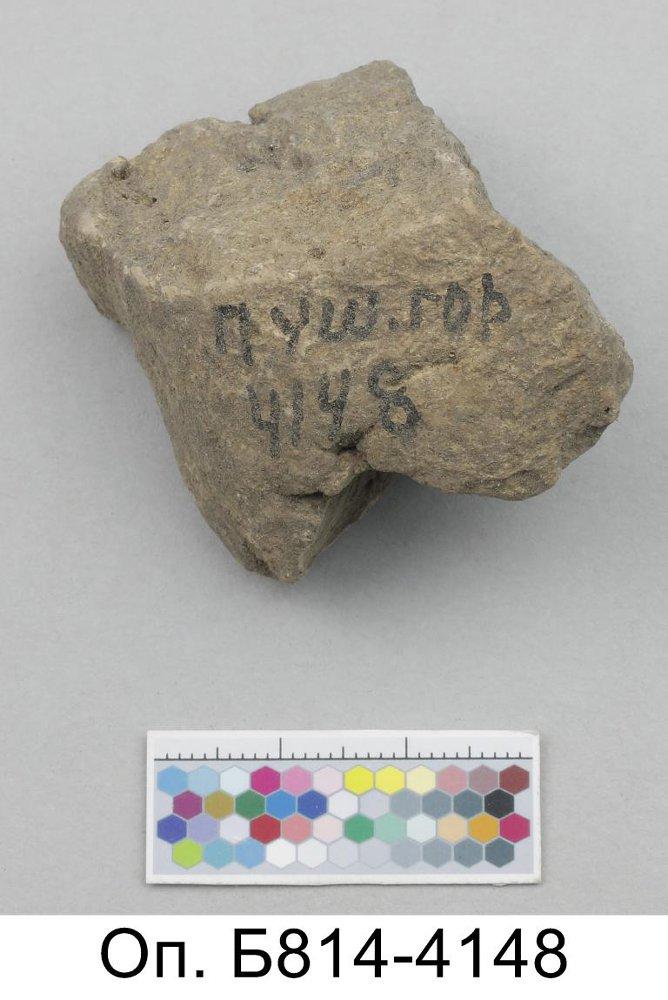 пуш.гор
4148
Оп. Б814-4148